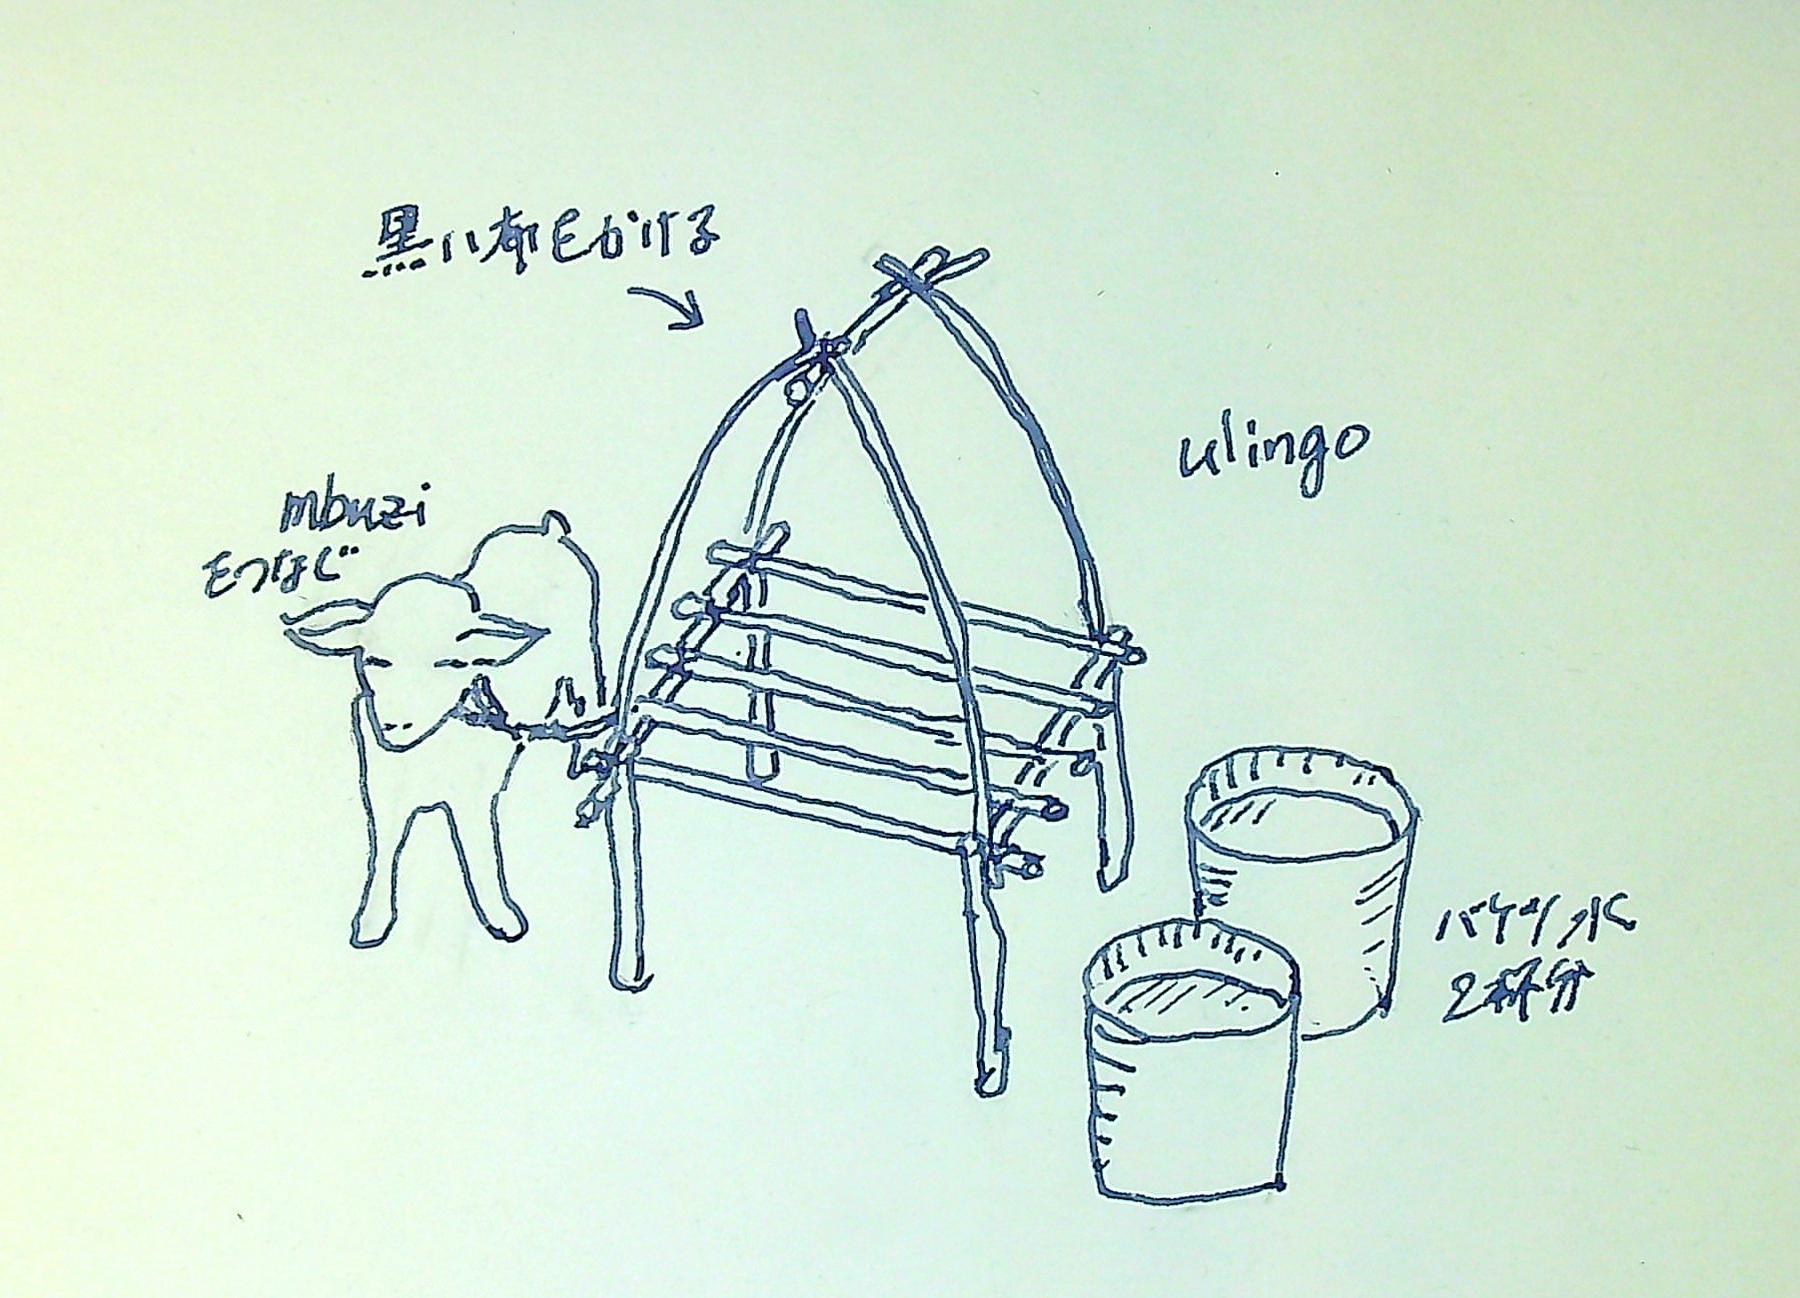 黒い布をかける
ulingo
mbuzi
をつなぐ
バケツ水
2杯分